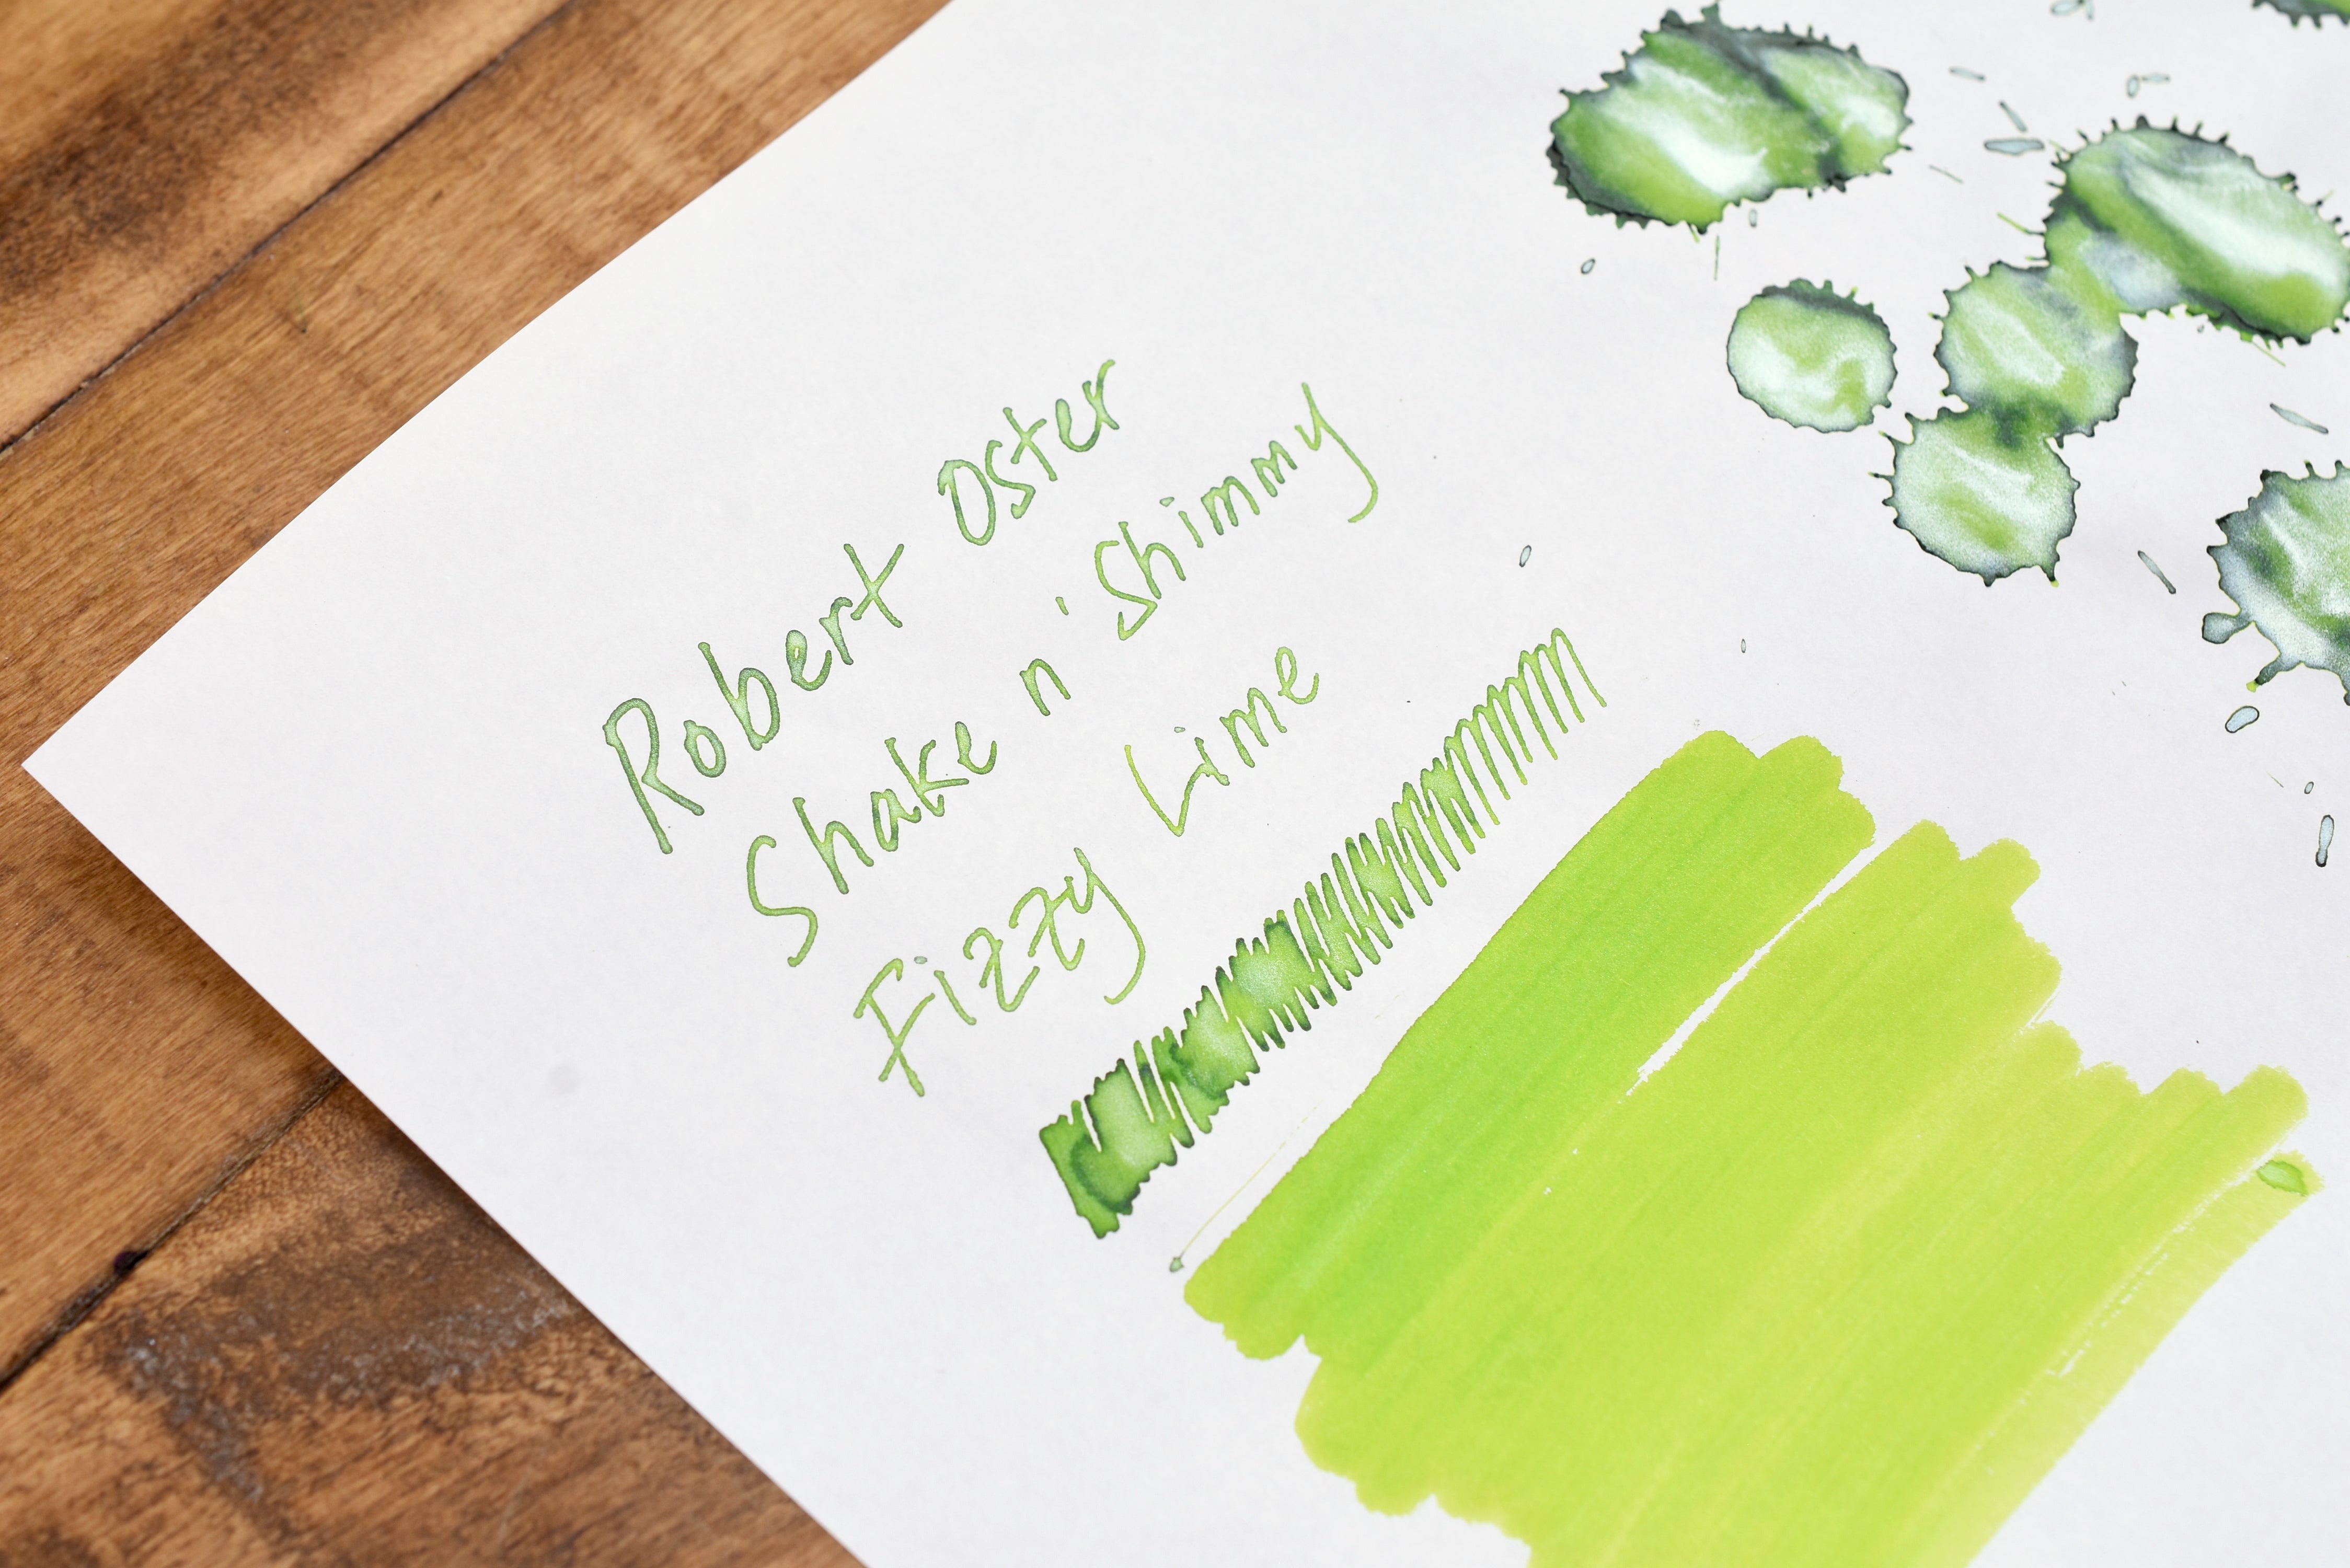 Robert Oster
Shake n' Shimmy
Fizzy Lime